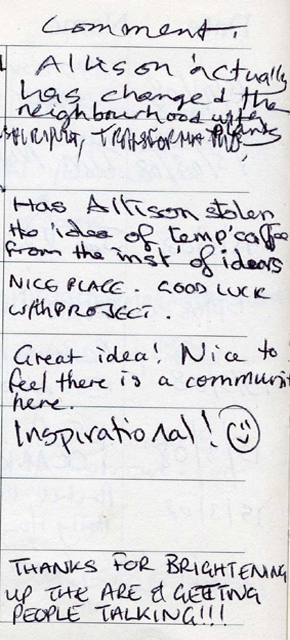 Comment.
Allison actually
has changed the
neighbourhood with
plants
TRANSFORMATIVE,
Has Allison stolen
the idea of temp' caffe
from the inst' of ideas
NICE PLACE. GOOD LUCK
WITH PROJECT.
Great idea! Nice to
feel there is a communit
here.
Inspirational!
THANKS FOR BRIGHTENING
UP THE ARE & GETTING
PEOPLE TALKING!!!